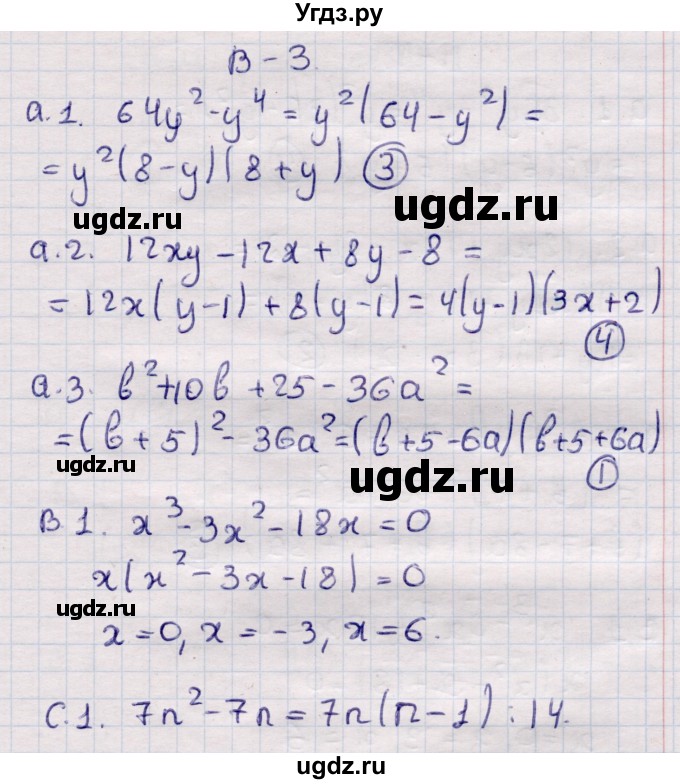 Угдз.ру
В - 3
а.1. 64y² - y⁴ = y²(64 - y²) =
= y²(8 - y)(8 + y) ③
ugdz.ru
ugdz.ru
а.2. 12xy - 12x + 8y - 8 =
= 12x(y - 1) + 8(y - 1) = 4(y - 1)(3x + 2)
④
а.3. b² + 10b + 25 - 36a² =
= (b + 5)² - 36a² = (b + 5 - 6a)(b + 5 + 6a)
ugdz.ru
ugdz.ru
①
В 1. x³ - 3x² - 18x = 0
x(x² - 3x - 18) = 0
ugdz.ru
x = 0, x = -3, x = 6.
С.1. 7n² - 7n = 7n(n - 1) ⋮ 14.
ugdz.ru
ugdz.ru